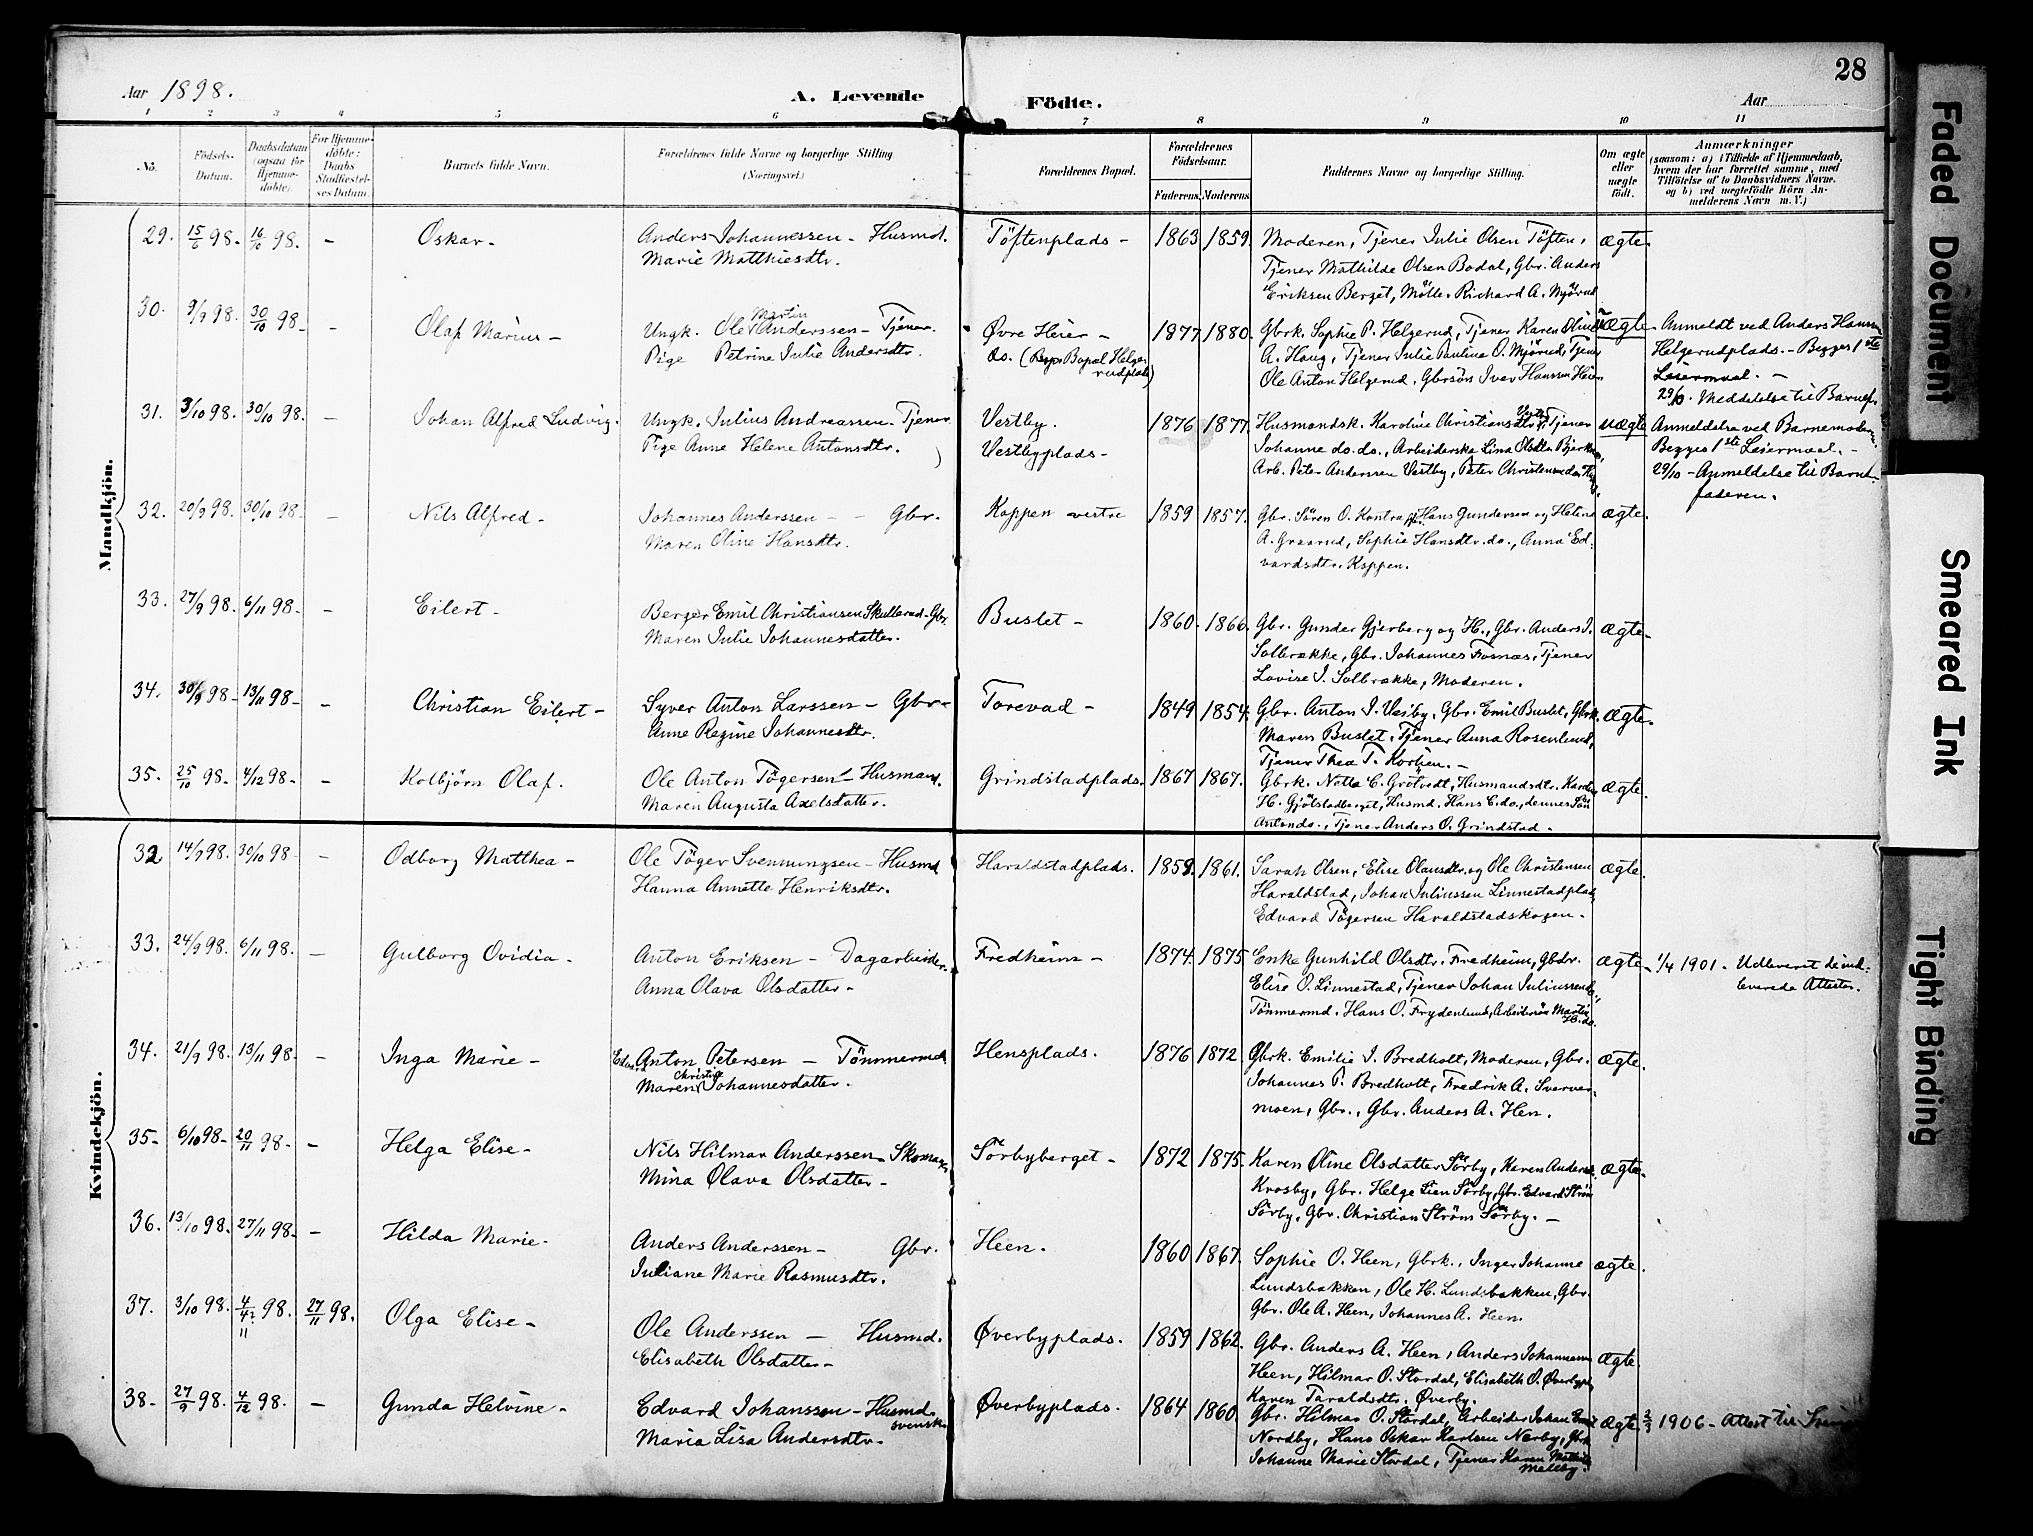 28
Aar 1898.
A. Levende Födte.
Aar
1 2 3 4 5 6 7 8 9 10 11
No.
Födsels-Datum.
Daabsdatum (ogsaa for Hjemmedöbte).
For Hjemmedöbte: Daabs Stadfæstelses Datum.
Barnets fulde Navn.
Forældrenes fulde Navne og borgerlige Stilling. (Næringsvei.)
Forældrenes Bopæl.
Forældrenes Födselsaar.
Faderens. Moderens.
Faddernes Navne og borgerlige Stilling.
Om ægte eller uægte födt.
Anmærkninger
(saasom: a) i Tilfælde af Hjemmedaab, hvem der har forrettet samme, med Tilföielse af to Daabsvidners Navne, og b) ved uægtefödte Börn Anmelderens Navn m. V.)
Mandkjön.
29. 15/6 98. 16/10 98. – Oskar – Anders Johannessen – Husmd. Töftenplads – 1863 1859. Moderen, Tjener Julie Olsen Töften, ægte.
Marie Matthiesdtr. Tjener Mathilde Olsen Bodal, Gbr. Anders
Eriksen Berget, Mölle. Richard A. Mjörud
30. 9/9 98. 30/10 98 – – Olaf Marius – Ungk. Ole Martin Anderssen – Tjener. Øvre Heier – 1877 1880. Gbrk. Sophie P. Helgerud, Tjener Karen Oline uægte. Anmeldt ved Anders Hansen
Pige Petrine Julie Andersdtr. do. (Bopæl Helgerudplads) A. Haug, Tjener Julie Pauline O. Mjörud, Tjener Helgerudplads. – Begges 1ste
Ole Anton Helgerud, Gbrsön Iver Hanssen Heier Leiermaal. –
29/10. Meddelelse til Barnef.
31. 3/10 98. 30/10 98. – Johan Alfred Ludvig. Ungk. Julius Andreassen – Tjener Vestby. 1876 1877. Husmandsk. Karoline Christiansdtr. Vestby, Tjener uægte Anmeldelse ved Barnemoderen.
Pige Anne Helene Antonsdtr. Vestbyplads – Johanne do. do., Arbeiderske Lina Olsdtr. Begges 1ste Leiermaal. –
Arb. Peter Andersen Vestby, Peter Christensen 29/10 – Anmeldelse til Barnefaderen.
32. 20/9 98. 30/10 98 – Nils Alfred – Johannes Anderssen – – Gbr. Koppen vestre 1859 1857. Gbr. Sören O. Kontra, Hans Gundersen og Helene ægte.
Maren Oline Hansdtr. A. Graarud, Sophie Hansdtr. do., Anna Edvardsdtr. Koppen.
33. 27/9 98. 6/11 98 – – Eilert – Berger Emil Christiansen Skullerud – Gbr. Buslet – 1860. 1866. Gbr. Gunder Gjerberg og H., Gbr. Anders J. ægte –
Maren Julie Johannesdatter. Solbrække, Gbr. Johannes Fosnæs, Tjener
Lovise J. Solbrække, Moderen.
34. 30/9 98 – 13/11 98 – – Christian Eilert – Syver Anton Larssen – Gbr – Torevad – 1849 1854. Gbr. Anton J. Vesby, Gbr. Emil Buslet, Gbrk. ægte.
Anne Regine Johannesdtr. Maren Buslet, Tjener Anna Rosenlund,
Tjener Thea T. Korben. –
35. 25/10 98 – 4/12 98 – – Kolbjörn Olaf. Ole Anton Tögersen – Husmand. Grindstadplads. 1867 1867. Gbrk. Netta C. Grötvedt, Husmandsdtr. Karoline ægte.
Maren Augusta Axelsdatter. H. Gjölstadberget, Husmd. Hans C. do., dennes Sön
Anton do., Tjener Anders O. Grindstad.
Kvindekjön.
32 14/9 98. 30/10 98 – – Odborg Matthea – Ole Töger Svenningsen – Husmd Haraldstadplads. 1859. 1861. Sarah Olsen, Elise Olausdtr. og Ole Christensen ægte.
Hanna Annette Henriksdtr. Haraldstad, Johan Juliussen Linnestadplads,
Edvard Tögersen Haraldstadskogen –
33. 24/9 98. 6/11 98. – Gulborg Ovidia – Anton Eriksen – Dagarbeider. Fredheim – 1874 1875 Enke Gunhild Olsdtr. Fredheim, Gbdr. ægte – 1/4 1901 – Udleveret de indleverede Attester.
Anna Olava Olsdatter – Elise O. Linnestad, Tjener Johan Juliussen do.,
Tömmermd. Hans O. Frydenlund, Arbeidersön Martin H. do.
34. 21/9 98. 13/11 98. – Inga Marie – Edvard Anton Petersen – Tömmermd. Hensplads. 1876 1872. Gbrk. Emilie J. Bredholt, Moderen, Gbr. ægte.
Maren Christine Johannesdatter. Johannes P. Bredholt, Fredrik A. Svarvermoen, Gbr., Gbr. Anders A. Hen.
35 – 6/10 98 – 20/11 98. – Helga Elise – Nils Hilmar Anderssen – Skomager Sörbyberget – 1872 1875. Karen Oline Olsdatter Sörby, Karen Anders. ægte.
Mina Olava Olsdatter – Krosby, Gbr. Helge Lien Sörby, Gbr. Edvard Ström
Sörby, Gbr. Christian Ström Sörby. –
36. 13/10 98. 27/11 98 – – Hilda Marie – Anders Anderssen – Gbr. Heen. 1860 1867. Sophie O. Heen, Gbrk., Inger Johanne ægte.
Juliane Marie Rasmusdtr. Lundsbakken, Ole H. Lundsbakken, Gbr.
Gbr. Ole A. Heen, Johannes A. Heen.
37. 3/10 98. 4/11 98. 27/11 98. Olga Elise – Ole Anderssen – Husmd. Øverbyplads. 1859 1862. Gbr. Anders A. Heen, Anders Johannesen ægte.
Elisabeth Olsdatter – Heen, Hilmar O. Stordal, Elisabeth O. Øverbypl.
Karen Taraldsdtr. Øverby.
38. 27/9 98. 4/12 98. – Gunda Helvine – Edvard Johanssen – Husmd. svensk Øverbyplads. 1864 1860. Gbr. Hilmar O. Stordal, Arbeider Johan Emil ægte. 2/3 1906 – Attest til
Maria Lisa Andersdtr. Nordby, Hans Oskar Karlsen Nærby, Gbrk.
Johanne Marie Stordal, Tjener Karen Mathilde Melleby.
Faded Document
Smeared Ink
Tight Binding